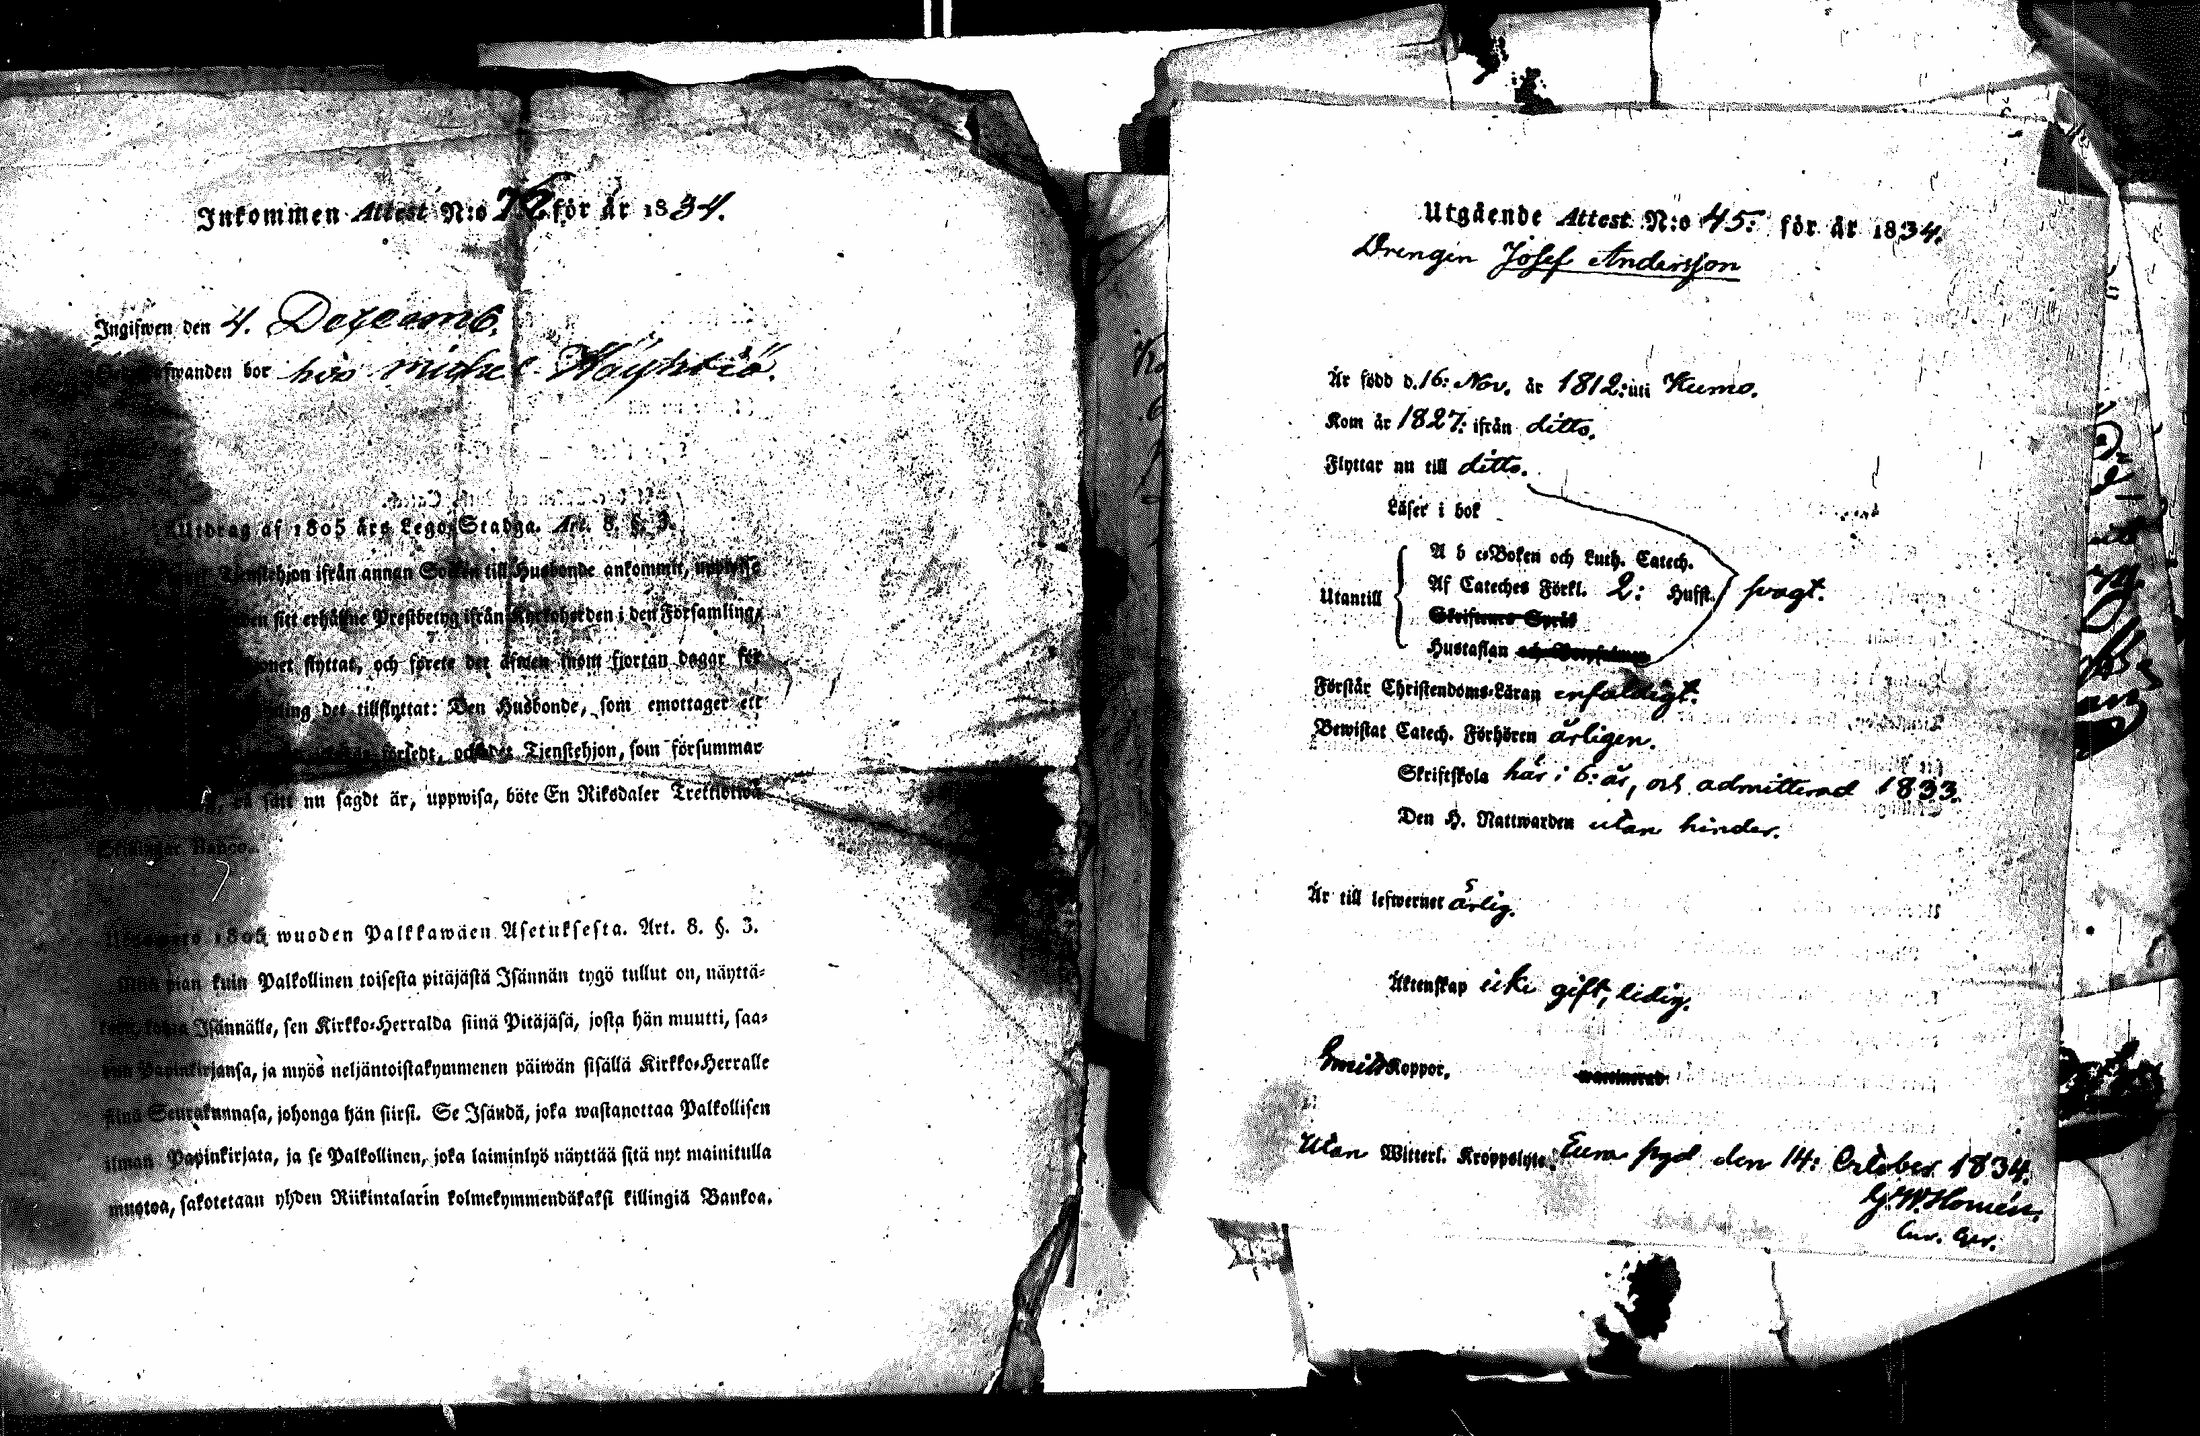 Inkommen Attest N:o för år 1834.
Ingifwen den 4. Decemb.
fwanden bor hos Michel Köyhtiö.
Utdrag af 1805 års Lego-Stadga. Art. 8. §. 3.
Tjenstehjon ifrån annan Socken till Husbonde ankommit, uppwise
den sitt erhållne Prestbetyg ifrån Kyrkoherden i den Församling,
flyttat, och förete det äfwen inom fjortan dagar för
det tillflyttat: Den Husbonde, som emottager ett
försedt, och det Tjenstehjon, som försummar
på sätt nu sagdt är, uppwisa, böte En Riksdaler Trettiotwå
Skillingar Banco.
1805 wuoden Palkkawäen Asetuksesta. Art. 8. §. 3.
Niin pian kuin Palkollinen toisesta pitäjästä Isännän tygö tullut on, näyttä-
Isännälle, sen Kirkko-Herralda siinä Pitäjäsä, josta hän muutti, saa-
Papinkirjansa, ja myös neljäntoistakymmenen päiwän sisällä Kirkko-Herralle
siinä Seurakunnasa, johonga hän siirsi. Se Isändä, joka wastanottaa Palkollisen
ilman Papinkirjata, ja se Palkollinen, joka laiminlyö näyttää sitä nyt mainitulla
muotoa, sakotetaan yhden Riikintalarin kolmekymmendäkaksi killingiä Bankoa.
Utgående Attest N:o 45: för år 1834.
Drengen Josef Andersson
Är född d. 16: Nov. år 1812: uti Kumo.
Kom år 1827: ifrån ditto.
Flyttar nu till ditto.
Läser i bok
A b c-Boken och Luth. Catech.
Utantill Af Cateches Förkl. 2: Hufst. swagt.
Skriftenes Språk
Hustaflan
Förstår Christendoms-Läran enfaldigt.
Bewistat Catech. Förhören årligen.
Skriftskola här i 6: år, och admitterad 1833.
Den H. Nattwarden utan hinder.
Är till lefwernet ärlig.
Äktenskap icke gift, ledig.
Koppor. waccinerad
Utan Witterl. Kroppslyte. Eura pgd den 14: October 1834.
G. W. Homén.